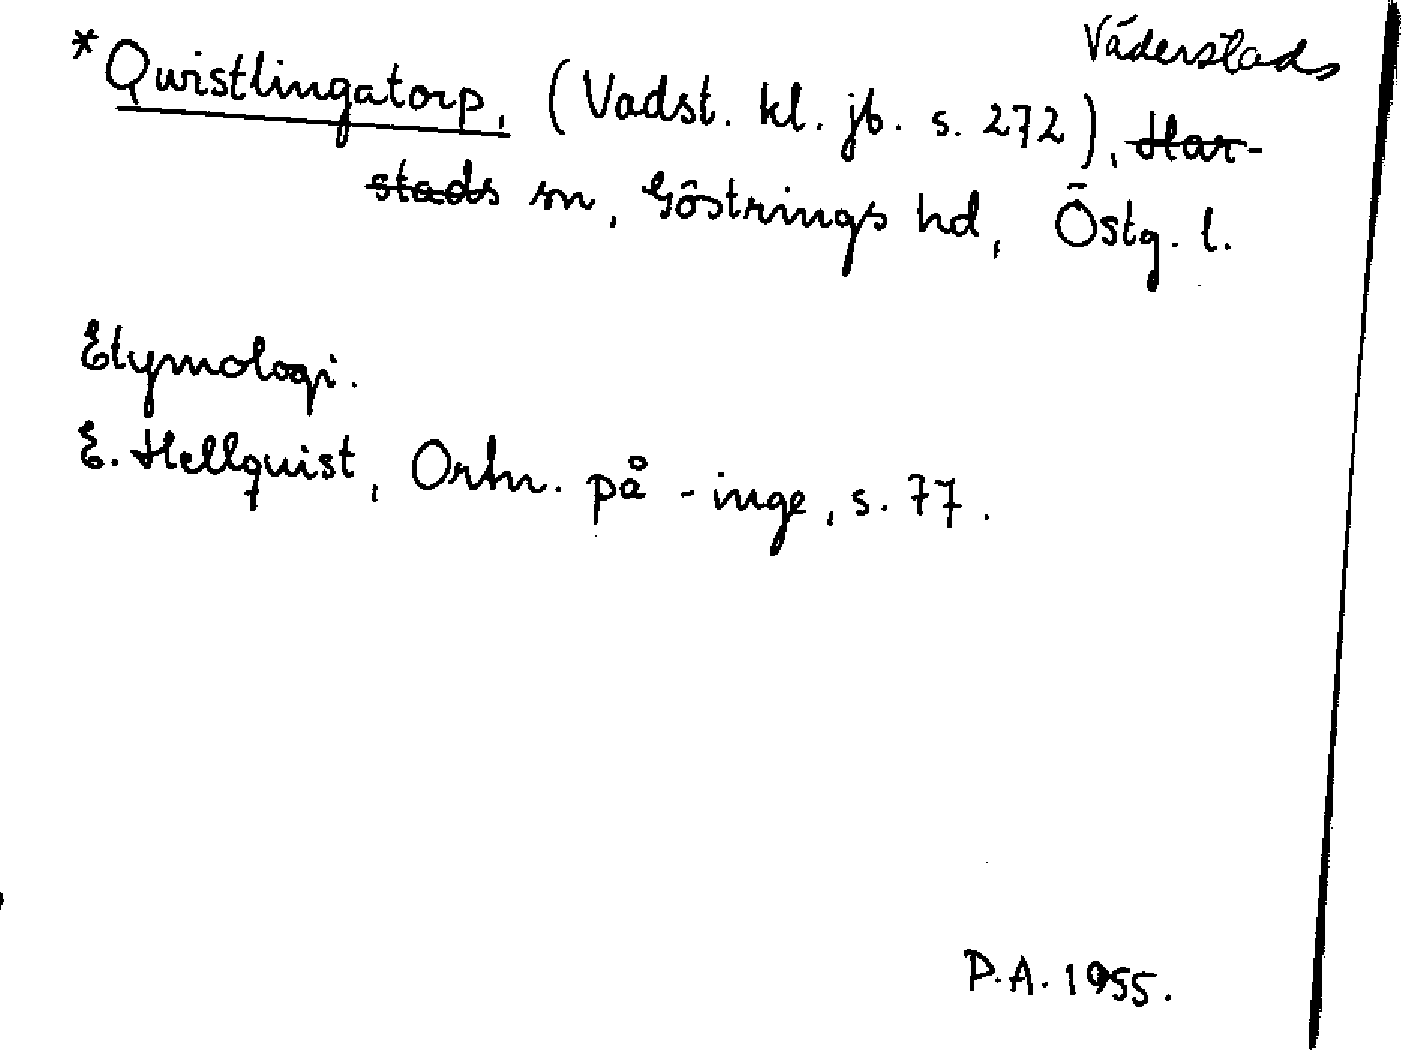 Väderstads
*Qwistlingatorp, (Vadst. kl. jb. s. 272), Har-
stads sn, Göstrings hd, Östg. l.
Etymologi.
E. Hellquist, Ortn. på -inge, s. 77.
P.A. 1955.